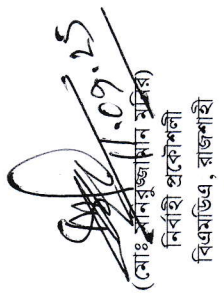 11.09.25
(মোঃ মনিরুজ্জামান মনির)
নির্বাহী প্রকৌশলী
বিএমডিএ, রাজশাহী